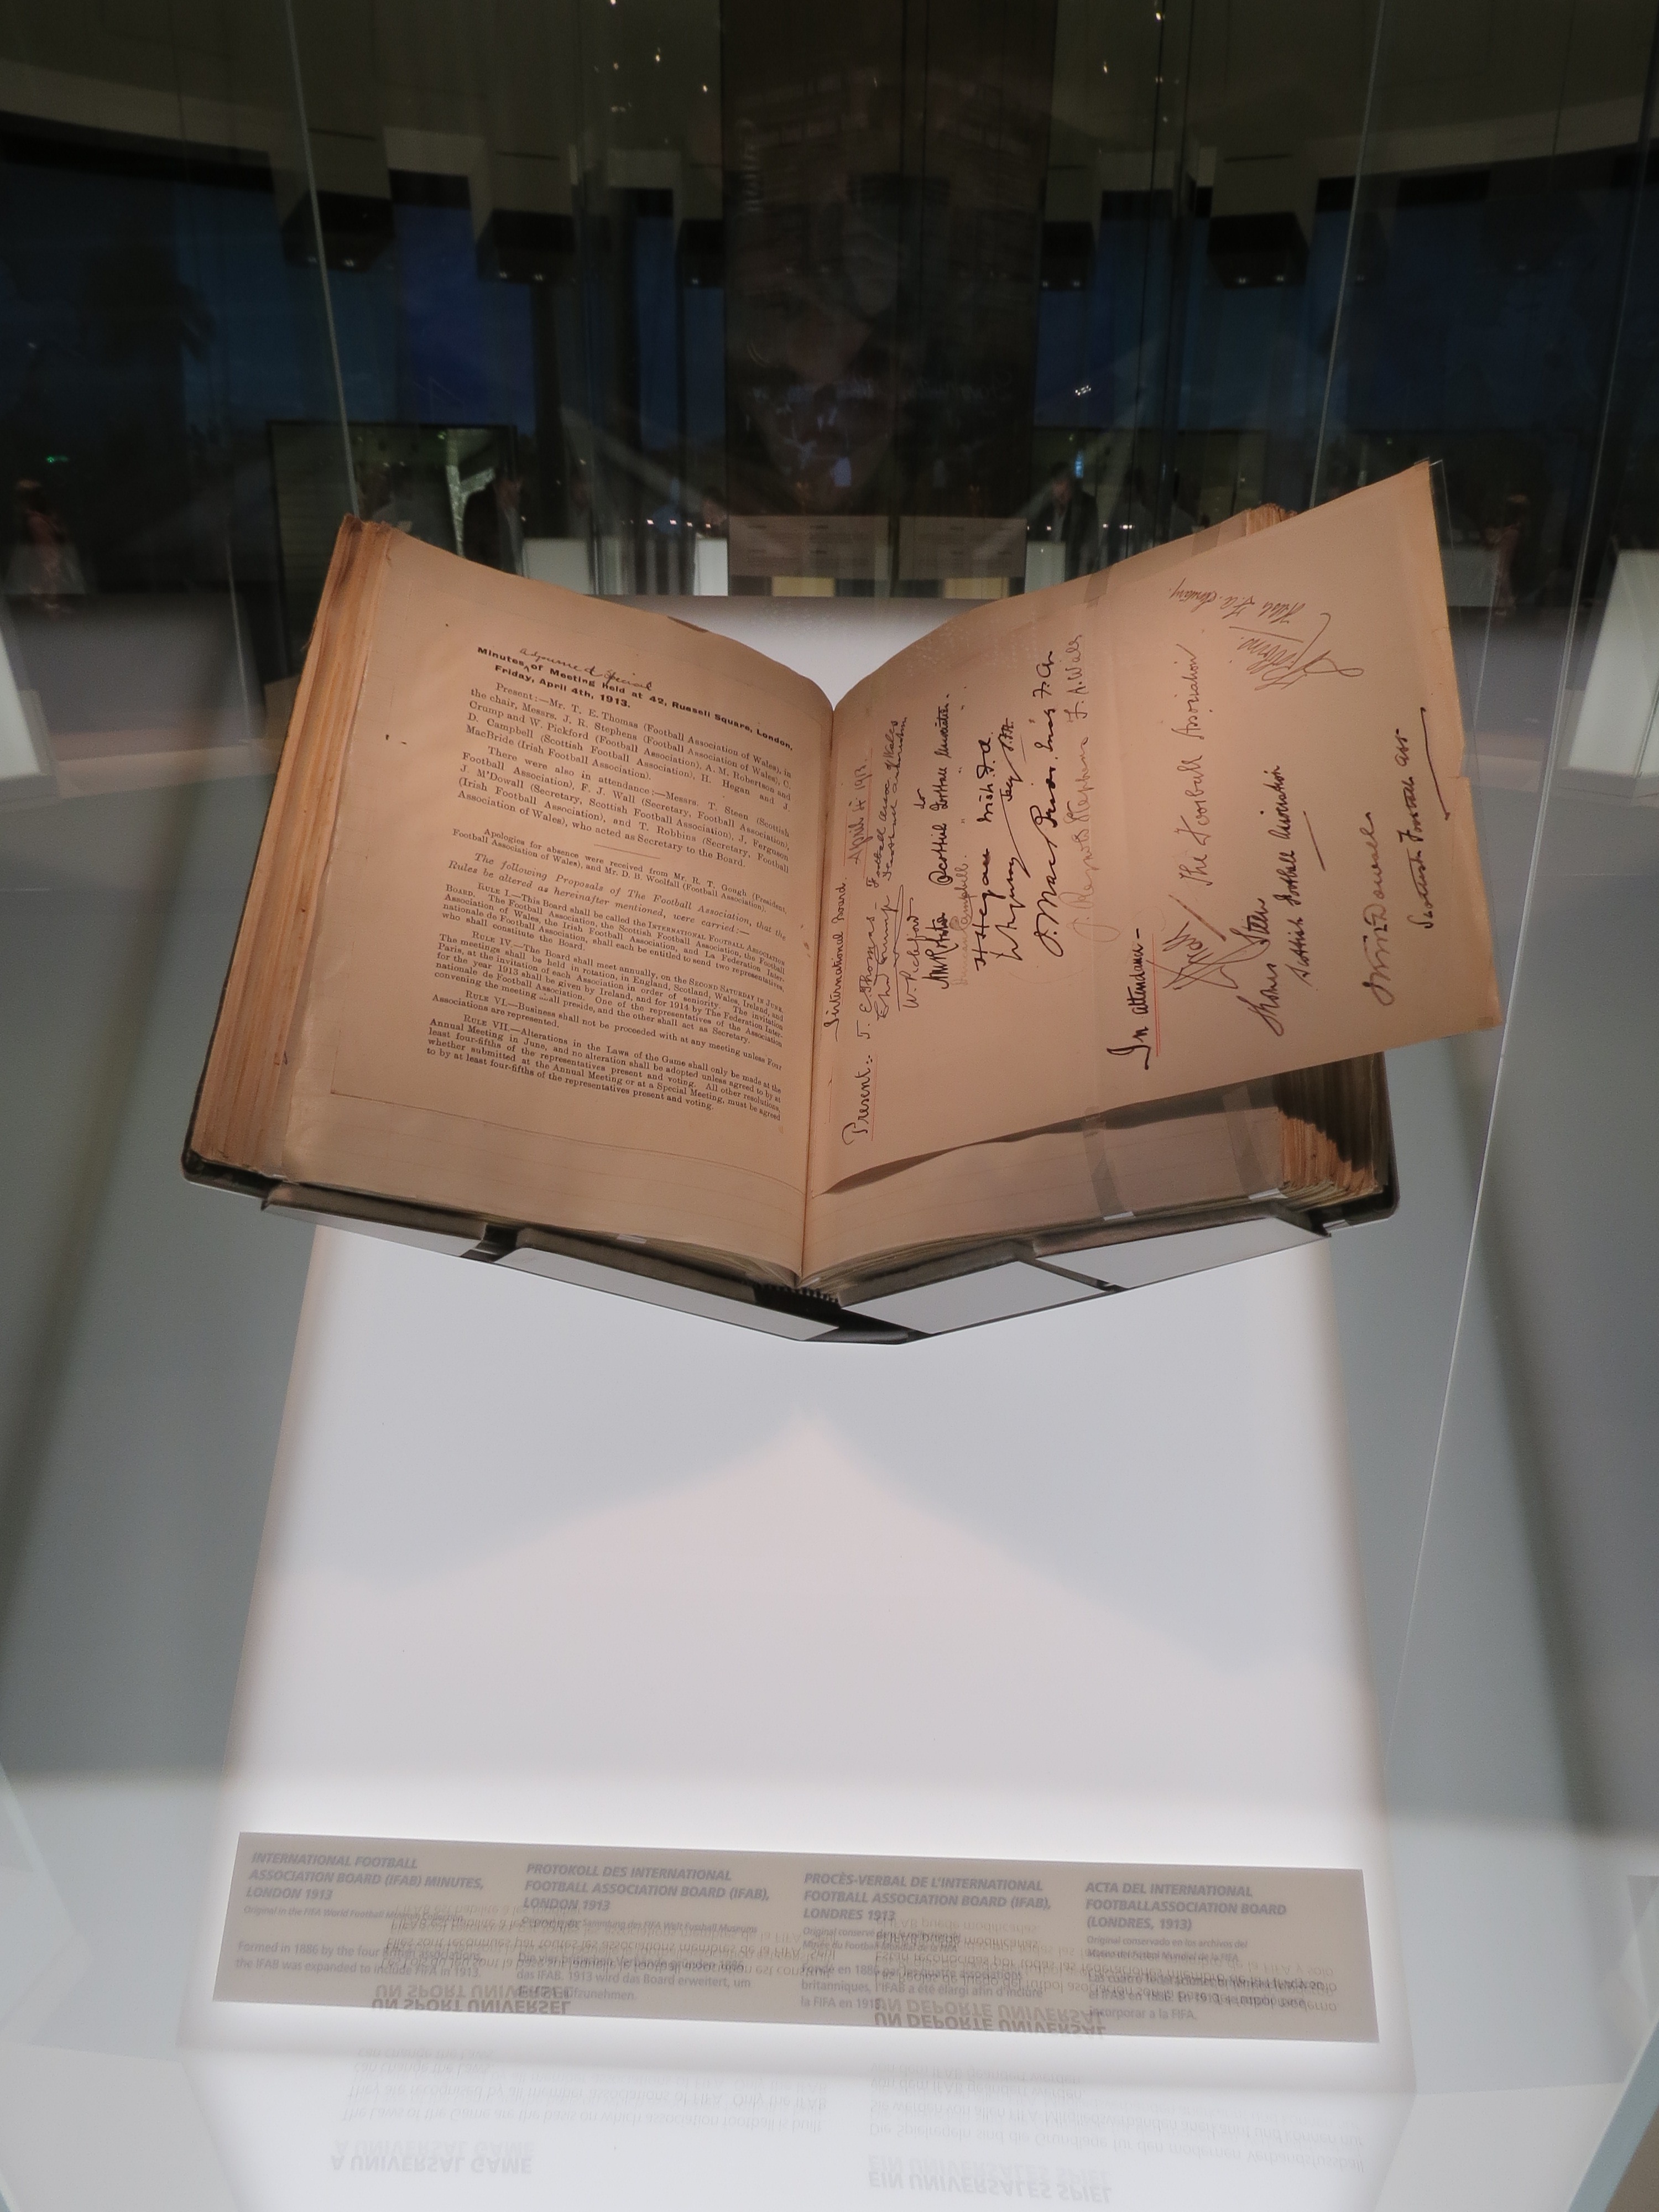 adjourned Special
Minutes of Meeting held at 42, Russell Square, London,
Friday, April 4th, 1913.
Present:—Mr. T. E. Thomas (Football Association of Wales), in
the chair, Messrs. J. R. Stephens (Football Association of Wales), C.
Crump and W. Pickford (Football Association), A. M. Robertson and
D. Campbell (Scottish Football Association), H. Hegan and J.
MacBride (Irish Football Association).
There were also in attendance:—Messrs. T. Steen (Scottish
Football Association), F. J. Wall (Secretary, Football Association),
J. M'Dowall (Secretary, Scottish Football Association), J. Ferguson
(Irish Football Association), and T. Robbins (Secretary, Football
Association of Wales), who acted as Secretary to the Board.
Apologies for absence were received from Mr. R. T. Gough (President,
Football Association of Wales), and Mr. D. B. Woolfall (Football Association).
The following Proposals of The Football Association, that the
Rules be altered as hereinafter mentioned, were carried:—
RULE I.—This Board shall be called the INTERNATIONAL FOOTBALL ASSOCIATION
BOARD. The Football Association, the Scottish Football Association, the Football
Association of Wales, the Irish Football Association, and La Federation Inter-
nationale de Football Association, shall each be entitled to send two representatives,
who shall constitute the Board.
RULE IV.—The Board shall meet annually, on the SECOND SATURDAY IN JUNE.
The meetings shall be held in rotation, in England, Scotland, Wales, Ireland, and
Paris, at the invitation of each Association in order of seniority. The invitation
for the year 1913 shall be given by Ireland, and for 1914 by The Federation Inter-
nationale de Football Association. One of the representatives of the Association
convening the meeting shall preside, and the other shall act as Secretary.
RULE VI.—Business shall not be proceeded with at any meeting unless Four
Associations are represented.
RULE VII.—Alterations in the Laws of the Game shall only be made at the
Annual Meeting in June, and no alteration shall be adopted unless agreed to by at
least four-fifths of the representatives present and voting. All other resolutions,
whether submitted at the Annual Meeting or at a Special Meeting, must be agreed
to by at least four-fifths of the representatives present and voting.
International Board. April 4 1913.
Present:- T. E Thomas - Football Assn of Wales
Chas Crump - Football Association
W. Pickford do
Scottish Football Association.
Campbell. " " "
H Hegan Irish F.A.
J. MacBride Irish F. A.
J. Reynolds Stephens F. A. Wales
In attendance -
The Football Association
Thomas Steen
Scottish Football Association
Scottish Football Ass
INTERNATIONAL FOOTBALL
ASSOCIATION BOARD (IFAB) MINUTES,
LONDON 1913
Original in the FIFA World Football Museum Collection
Formed in 1886 by the four British associations,
the IFAB was expanded to include FIFA in 1913.
PROTOKOLL DES INTERNATIONAL
FOOTBALL ASSOCIATION BOARD (IFAB),
LONDON 1913
das IFAB. 1913 wird das Board erweitert, um
PROCÈS-VERBAL DE L'INTERNATIONAL
FOOTBALL ASSOCIATION BOARD (IFAB),
LONDRES 1913
Fondé en 1886 par les quatre associations
britanniques, l'IFAB a été élargi afin d'inclure
la FIFA en 1913.
ACTA DEL INTERNATIONAL
FOOTBALLASSOCIATION BOARD
(LONDRES, 1913)
Original conservado en los archivos del
Museo del Fútbol Mundial de la FIFA
incorporar a la FIFA.
UN SPORT UNIVERSEL
UN DEPORTE UNIVERSAL
can change the Laws.
They are recognised by all member associations of FIFA. Only the IFAB
The Laws of the Game are the basis on which association football is built.
A UNIVERSAL GAME
Die Spielregeln sind die Grundlage für den modernen Verbandsfussball.
EIN UNIVERSALES SPIEL